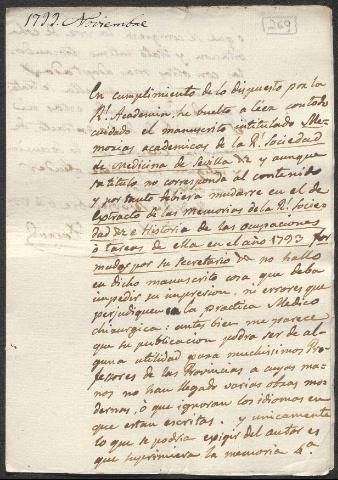 1793. Noviembre
269
En cumplimiento de lo dispuesto por la
Rl. Academia, he buelto a leer con todo
cuidado el manuscrito intitulado Me-
morias academicas de la Rl. Sociedad
de Medicina de Sevilla &c y aunque
tal titulo no corresponda al contenido
y por tanto debiera mudarse en el de
extracto de las memorias de la Rl. Socie-
dad &c e Historia de las ocupaciones
ò tareas de ella en el año 1793 for-
mados por su secretario &c no hallo
en dicho manuscrito cosa que deba
impedir su impresion, ni errores que
perjudiquen en la practica Medico
chirurgica: antes bien me parece
que su publicacion podra ser de al-
guna utilidad para muchissimos Pro-
fesores de las Provincias a cuyas ma-
nos no han llegado varias obras mo-
dernas, ò que ignoran los idiomas en
que estan escritas. y unicamente
lo que se podria exigir del autor es
que suprimiera la memoria 4.a